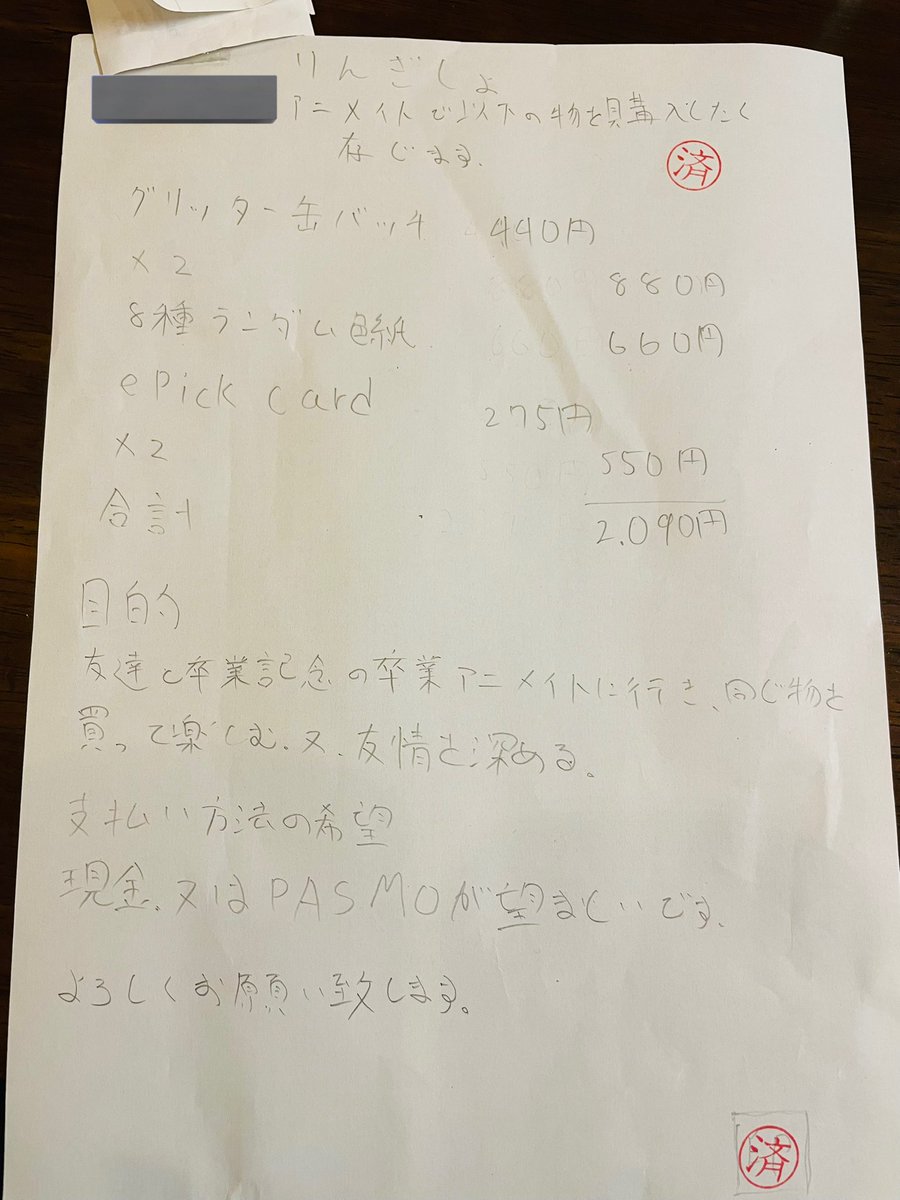 りんぎしょ
アニメイトで以下の物を購入したく
存じます。
済
グリッター缶バッチ 440円
×2 880円
8種ランダム色紙 660円
ePick card 275円
×2 550円
合計 2.090円
目的
友達と卒業記念の卒業アニメイトに行き、同じ物を
買って楽しむ、又、友情を深める。
支払い方法の希望
現金、又はPASMOが望ましいです。
よろしくお願い致します。
済